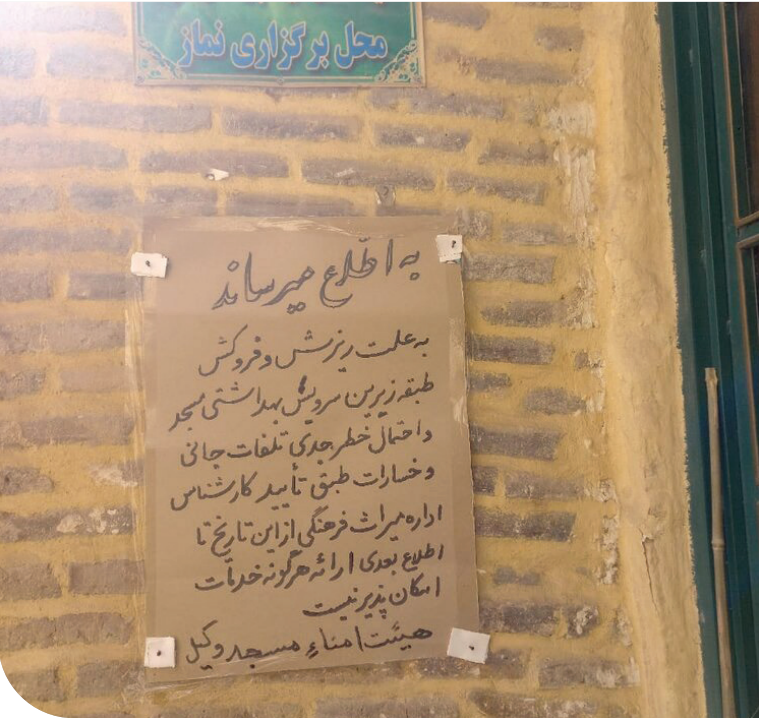 محل برگزاری نماز
به اطّلاع میرساند
به علت ریزش و فروکش
طبقه زیرین سرویس بهداشتی مسجد
و احتمال خطر جدی تلفات جانی
و خسارات طبق تأیید کارشناس
اداره میراث فرهنگی از این تاریخ تا
اطلاع بعدی ارائه هرگونه خدمات
امکان پذیر نیست
هیئت امناء مسجد وکیل